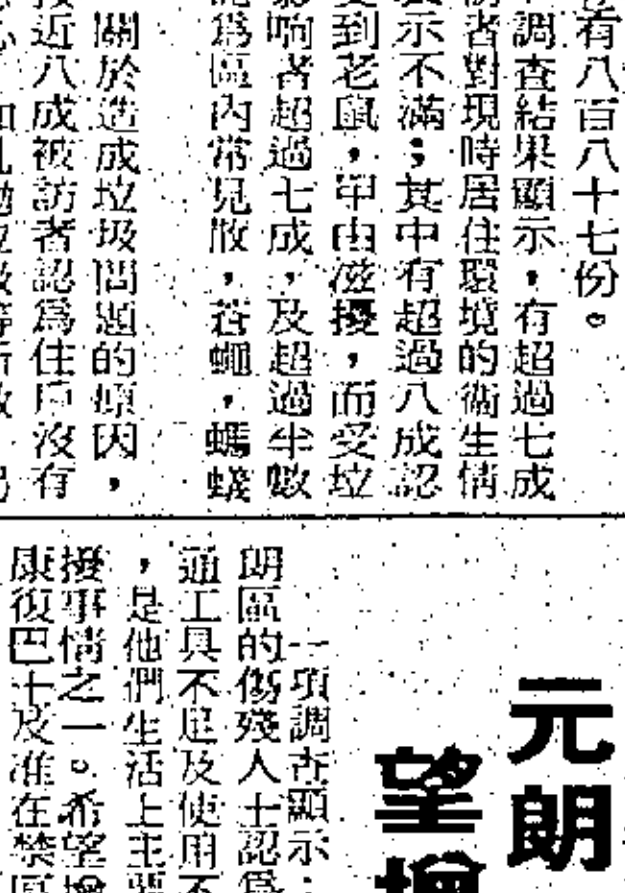 有八百八十七份。
調查結果顯示，有超過七成
者對現時居住環境的衞生情
示不滿；其中有超過八成認
受到老鼠，甲由滋擾，而受垃
影响者超過七成，及超過半數
認爲區內常見散，蒼蠅，螞蟻
關於造成垃圾問題的原因，
近八成被訪者認爲住戶沒有
元朗
望增
一項調查顯示：
朗區的傷殘人士認爲
通工具不足及使用不
，是他們生活上主要
擾事情之一。希望增
康復巴士及准在禁區